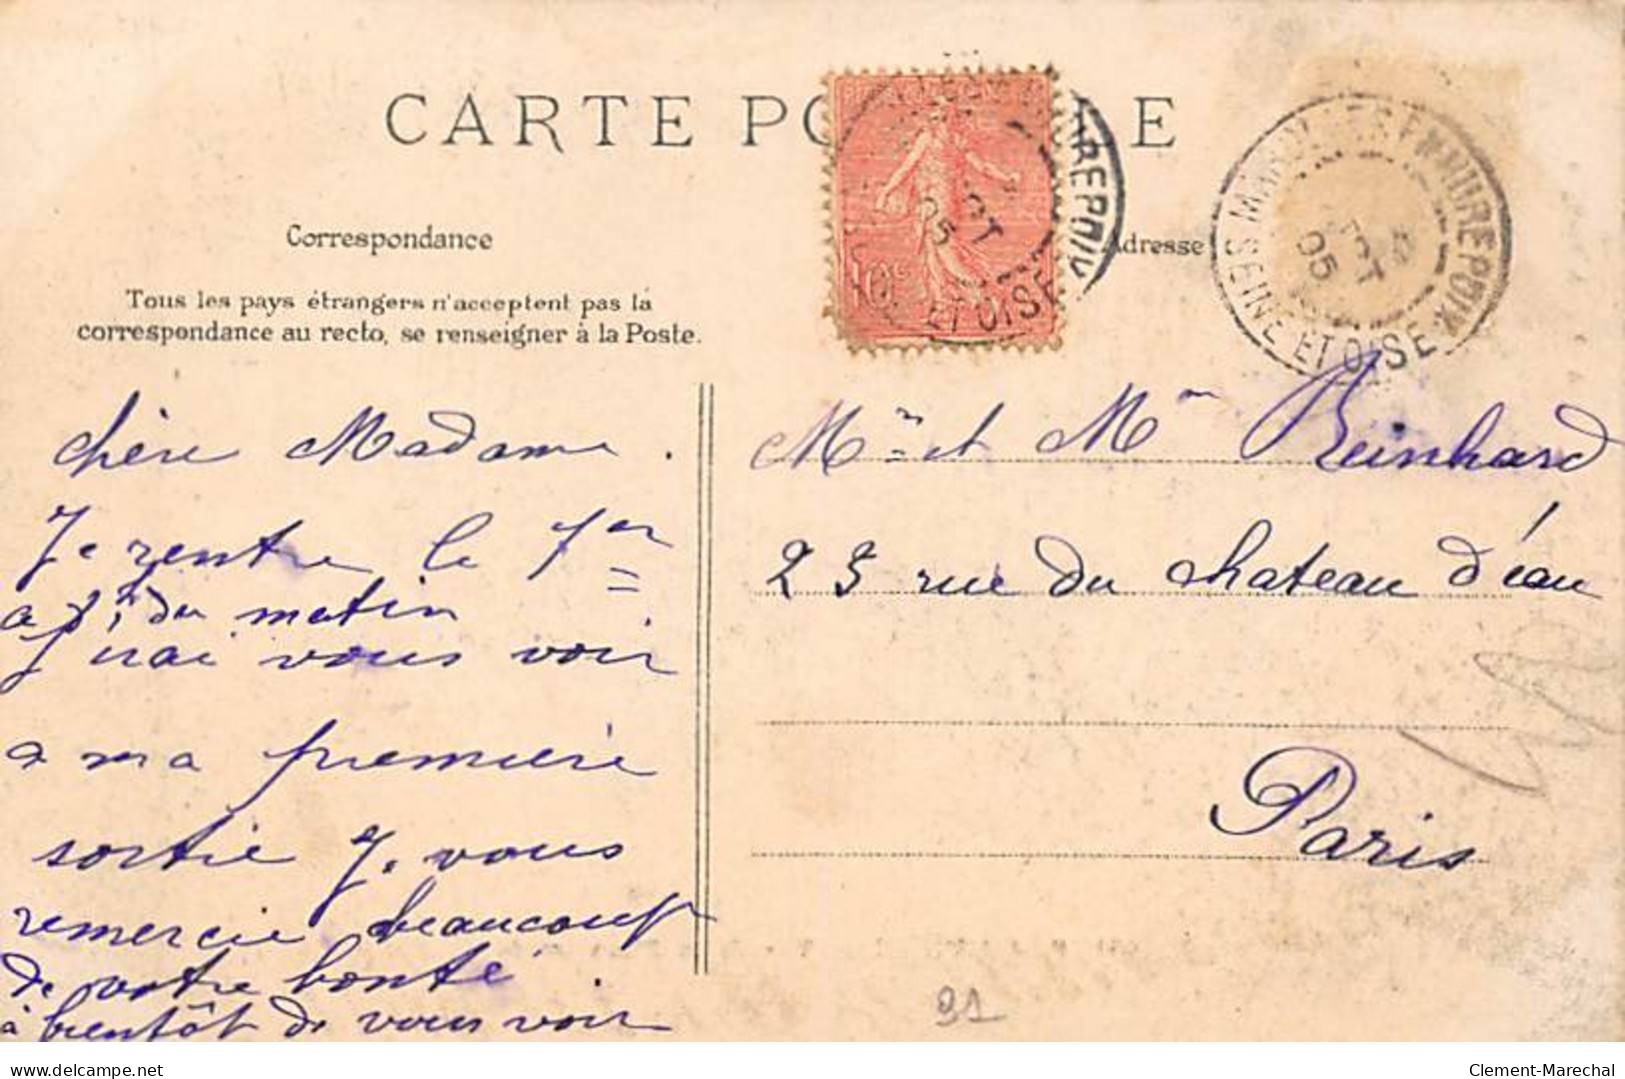 CARTE PO
E
Correspondance
Adresse
Tous les pays étrangers n'acceptent pas la
correspondance au recto, se renseigner à la Poste.
SEINE ET OISE
05
chère Madame.
Je rentre le 1er
a du matin
J'irai vous voir
a ma première
sortie Je vous
remercie beaucoup
de votre bonté
à bientôt de vous voir
Mr et Mme Reinhard
25 rue du chateau d'éau
Paris
91
delcampe.net
Clement-Marechal